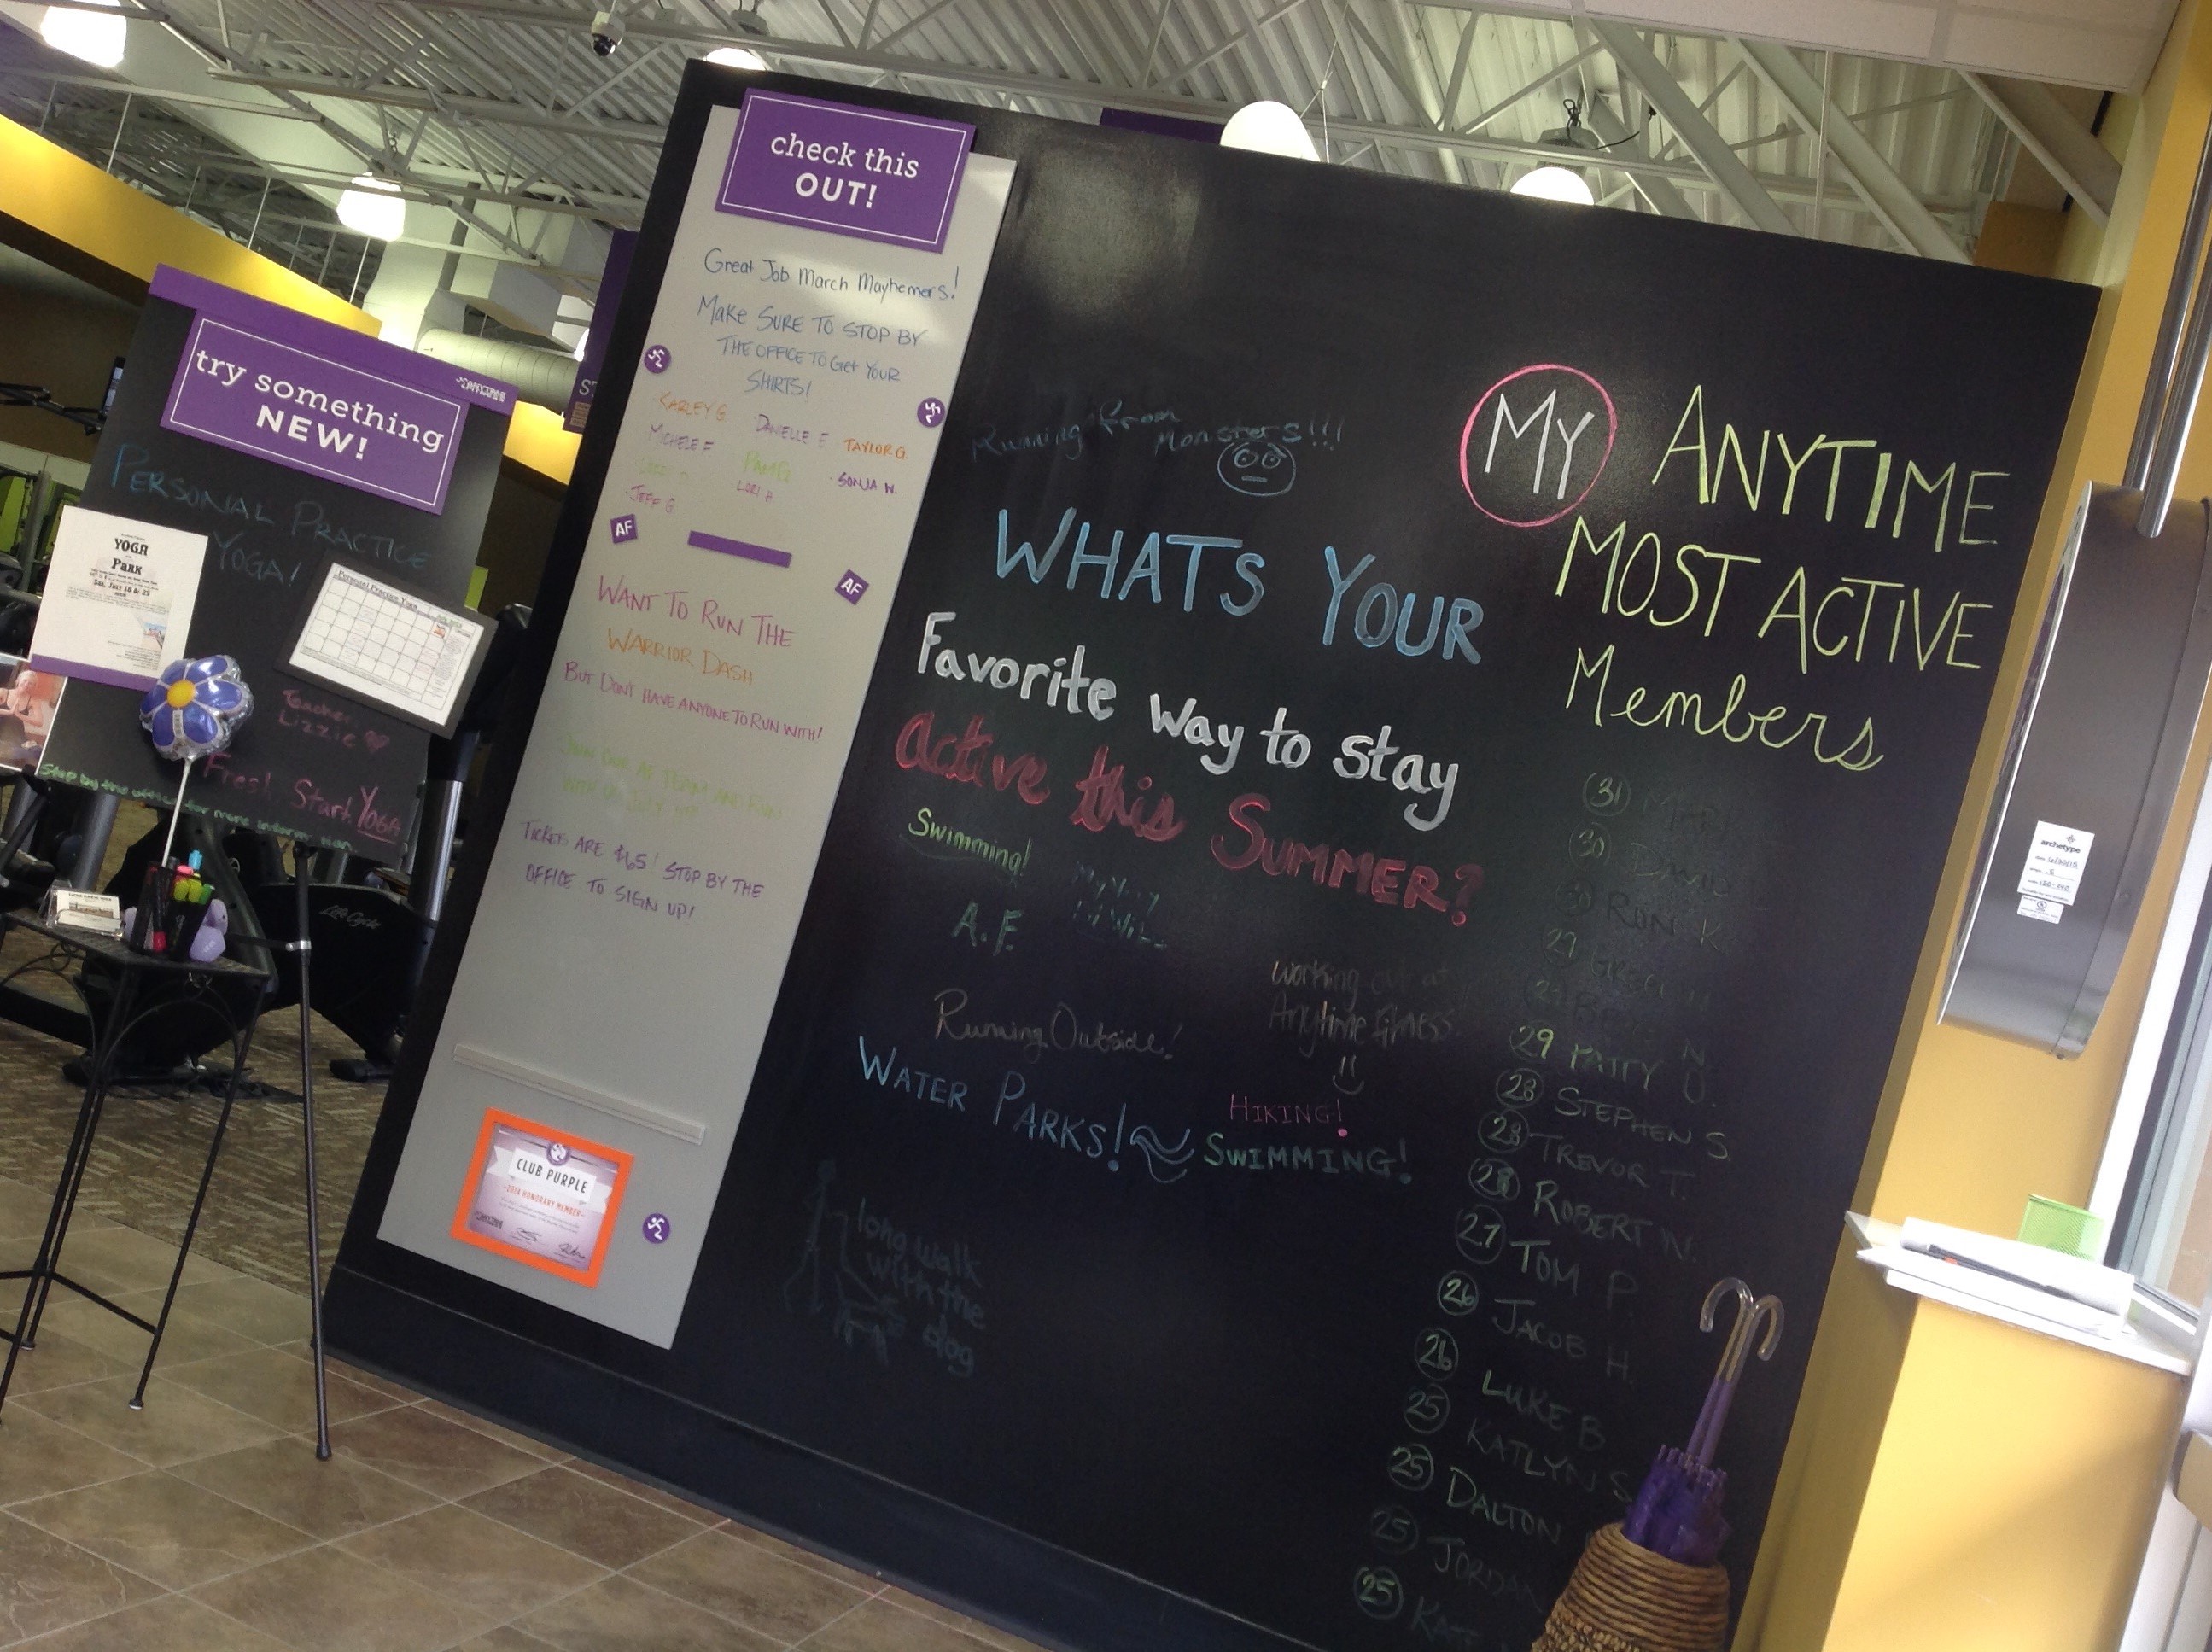 try something
NEW!
PERSONAL PRACTICE
YOGA!
YOGA
PARK
Sat. July 18 & 25
Personal Practice Yoga
Teacher
Lizzie
Fresh Start YOGA
Stop by the office for more information.
Life Cycle
check this
OUT!
Great Job March Mayhemers!
MAKE SURE TO STOP BY
THE OFFICE TO GET YOUR
SHIRTS!
KARLEY G. DANIELLE F. TAYLOR G
MICHELE F PAM G SONJA W.
JEFF G LORI H
AF
AF
WANT TO RUN THE
WARRIOR DASH
BUT DONT HAVE ANYONE TO RUN WITH!
JOIN OUR AF TEAM AND RUN
WITH US JULY
TICKETS ARE $65! STOP BY THE
OFFICE TO SIGN UP!
CLUB PURPLE
2014 HONORARY MEMBER
Running from
Monsters!!!
WHATS YOUR
Favorite way to stay
active this SUMMER?
Swimming!
A.F.
working out at
Anytime Fitness
Running Outside!
WATER PARKS!
HIKING!
SWIMMING!
long walk
with the
dog
MY ANYTIME
MOST ACTIVE
Members
31
30 DAVID
30 RON K
29 PATTY D.
28 STEPHEN S.
28 TREVOR T.
28 ROBERT W.
27 TOM P.
26 JACOB H.
26 LUKE B
25 KATLYN S
25 DALTON
25 JORDAN
25
archetype